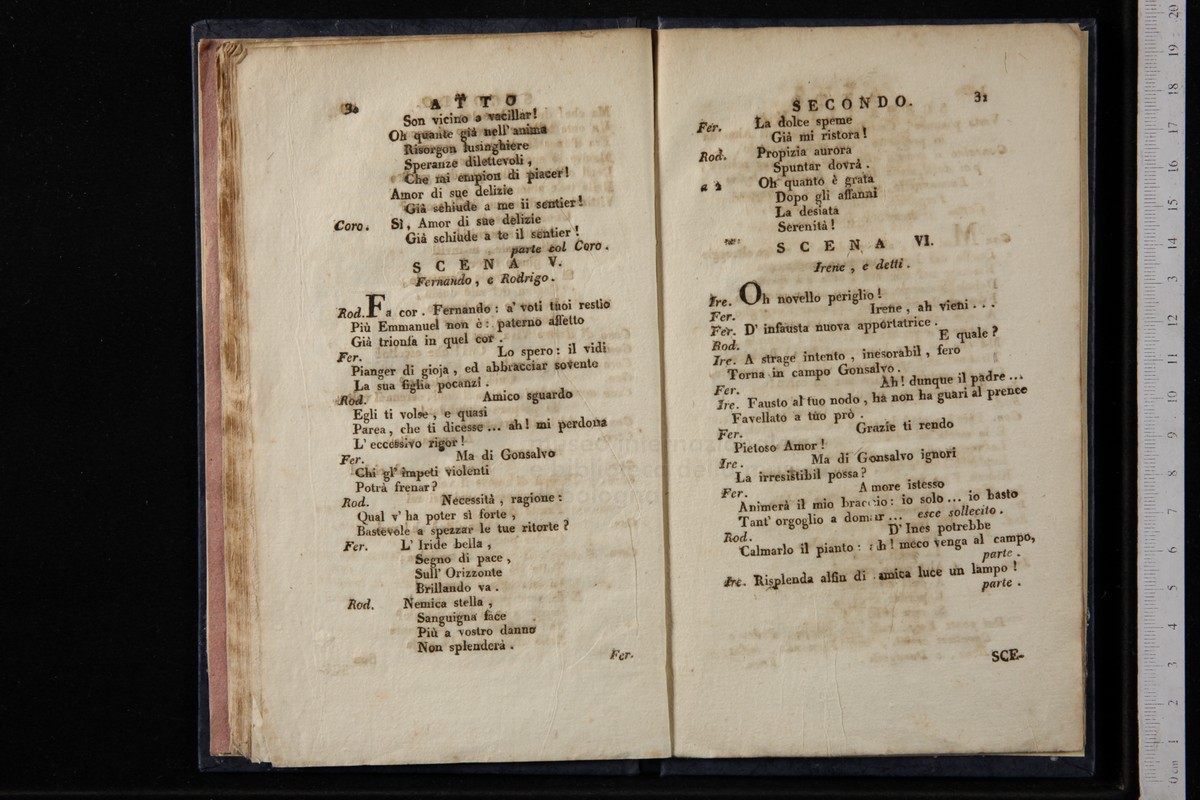 30
ATTO
Son vicino a vacillar!
Oh quante già nell' anima
Risorgon lusinghiere
Speranze dilettevoli,
Che mi empion di piacer!
Amor di sue delizie
Già schiude a me ii sentier!
Coro. Sì, Amor di sue delizie
Già schiude a te il sentier!
parte col Coro.
SCENA V.
Fernando, e Rodrigo.
Rod. Fa cor. Fernando: a' voti tuoi restìo
Più Emmanuel non è: paterno affetto
Già trionfa in quel cor.
Fer. Lo spero: il vidi
Pianger di gioja, ed abbracciar sovente
La sua figlia pocanzi.
Rod. Amico sguardo
Egli ti volse, e quasi
Parea, che ti dicesse... ah! mi perdona
L' eccessivo rigor!
Fer. Ma di Gonsalvo
Chi gl' impeti violenti
Potrà frenar?
Rod. Necessità, ragione:
Qual v' ha poter sì forte,
Bastevole a spezzar le tue ritorte?
Fer. L' Iride bella,
Segno di pace,
Sull' Orizzonte
Brillando va.
Rod. Nemica stella,
Sanguigna face
Più a vostro danno
Non splenderà.
Fer.
SECONDO.
31
Fer. La dolce speme
Già mi ristora!
Rod. Propizia aurora
Spuntar dovrà.
a 2 Oh quanto è grata
Dopo gli affanni
La desiata
Serenità!
SCENA VI.
Irene, e detti.
Ire. Oh novello periglio!
Fer. Irene, ah vieni...
Fer. D' infausta nuova apportatrice.
Rod. E quale?
Ire. A strage intento, inesorabil, fero
Torna in campo Gonsalvo.
Fer. Ah! dunque il padre...
Ire. Fausto al tuo nodo, ha non ha guari al prence
Favellato a tuo prò.
Fer. Grazie ti rendo
Pietoso Amor!
Ire. Ma di Gonsalvo ignori
La irresistibil possa?
Fer. Amore istesso
Animerà il mio braccio: io solo... io basto
Tant' orgoglio a domar... esce sollecito.
Rod. D' Ines potrebbe
Calmarlo il pianto: ah! meco venga al campo,
parte.
Ire. Risplenda alfin di amica luce un lampo!
parte.
SCE-